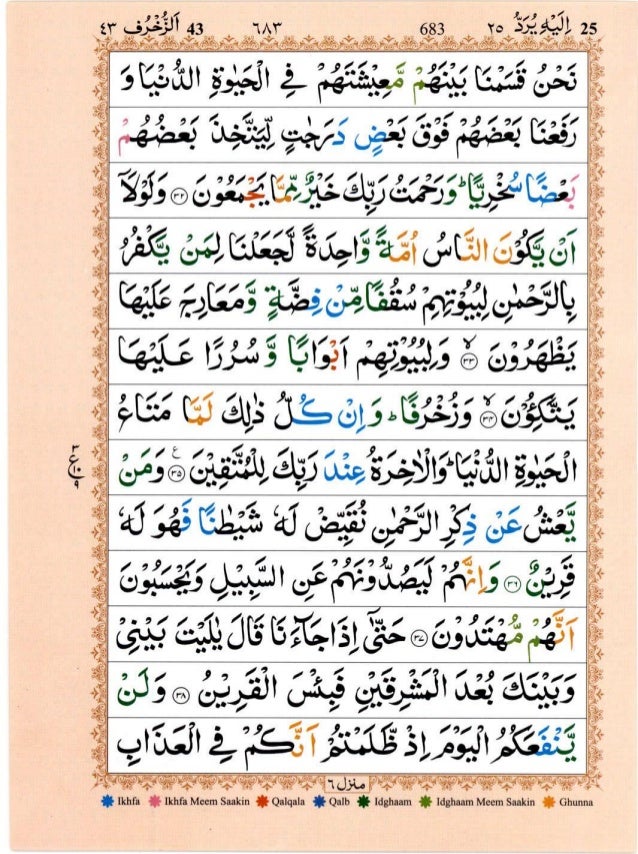 ٤٣ اَلزُّخْرُف 43 ٦٨٣ 683 اِلَيْهِ يُرَدُّ ٢٥ 25
نَحْنُ قَسَمْنَا بَيْنَهُمْ مَّعِيْشَتَهُمْ فِي الْحَيٰوةِ الدُّنْيَا وَ
رَفَعْنَا بَعْضَهُمْ فَوْقَ بَعْضٍ دَرَجٰتٍ لِّيَتَّخِذَ بَعْضُهُمْ
بَعْضًا سُخْرِيًّا ؕ وَرَحْمَتُ رَبِّكَ خَيْرٌ مِّمَّا يَجْمَعُوْنَ ۝٣٢ وَلَوْلَاۤ
اَنْ يَّكُوْنَ النَّاسُ اُمَّةً وَّاحِدَةً لَّجَعَلْنَا لِمَنْ يَّكْفُرُ
بِالرَّحْمٰنِ لِبُيُوْتِهِمْ سُقُفًا مِّنْ فِضَّةٍ وَّمَعَارِجَ عَلَيْهَا
يَظْهَرُوْنَ ۙ۝٣٣ وَلِبُيُوْتِهِمْ اَبْوَابًا وَّسُرُرًا عَلَيْهَا
يَتَّكِـُٔوْنَ ۙ۝٣٤ وَزُخْرُفًا ؕ وَاِنْ كُلُّ ذٰلِكَ لَمَّا مَتَاعُ
الْحَيٰوةِ الدُّنْيَا ؕ وَالْاٰخِرَةُ عِنْدَ رَبِّكَ لِلْمُتَّقِيْنَ ۝٣٥ ع وَمَنْ
٣ ع ١٠ ٩
يَّعْشُ عَنْ ذِكْرِ الرَّحْمٰنِ نُقَيِّضْ لَهٗ شَيْطٰنًا فَهُوَ لَهٗ
قَرِيْنٌ ۝٣٦ وَاِنَّهُمْ لَيَصُدُّوْنَهُمْ عَنِ السَّبِيْلِ وَيَحْسَبُوْنَ
اَنَّهُمْ مُّهْتَدُوْنَ ۝٣٧ حَتّٰۤى اِذَا جَآءَنَا قَالَ يٰلَيْتَ بَيْنِيْ
وَبَيْنَكَ بُعْدَ الْمَشْرِقَيْنِ فَبِئْسَ الْقَرِيْنُ ۝٣٨ وَلَنْ
يَّنْفَعَكُمُ الْيَوْمَ اِذْ ظَّلَمْتُمْ اَنَّكُمْ فِي الْعَذَابِ
منزل ٦
Ikhfa Ikhfa Meem Saakin Qalqala Qalb Idghaam Idghaam Meem Saakin Ghunna